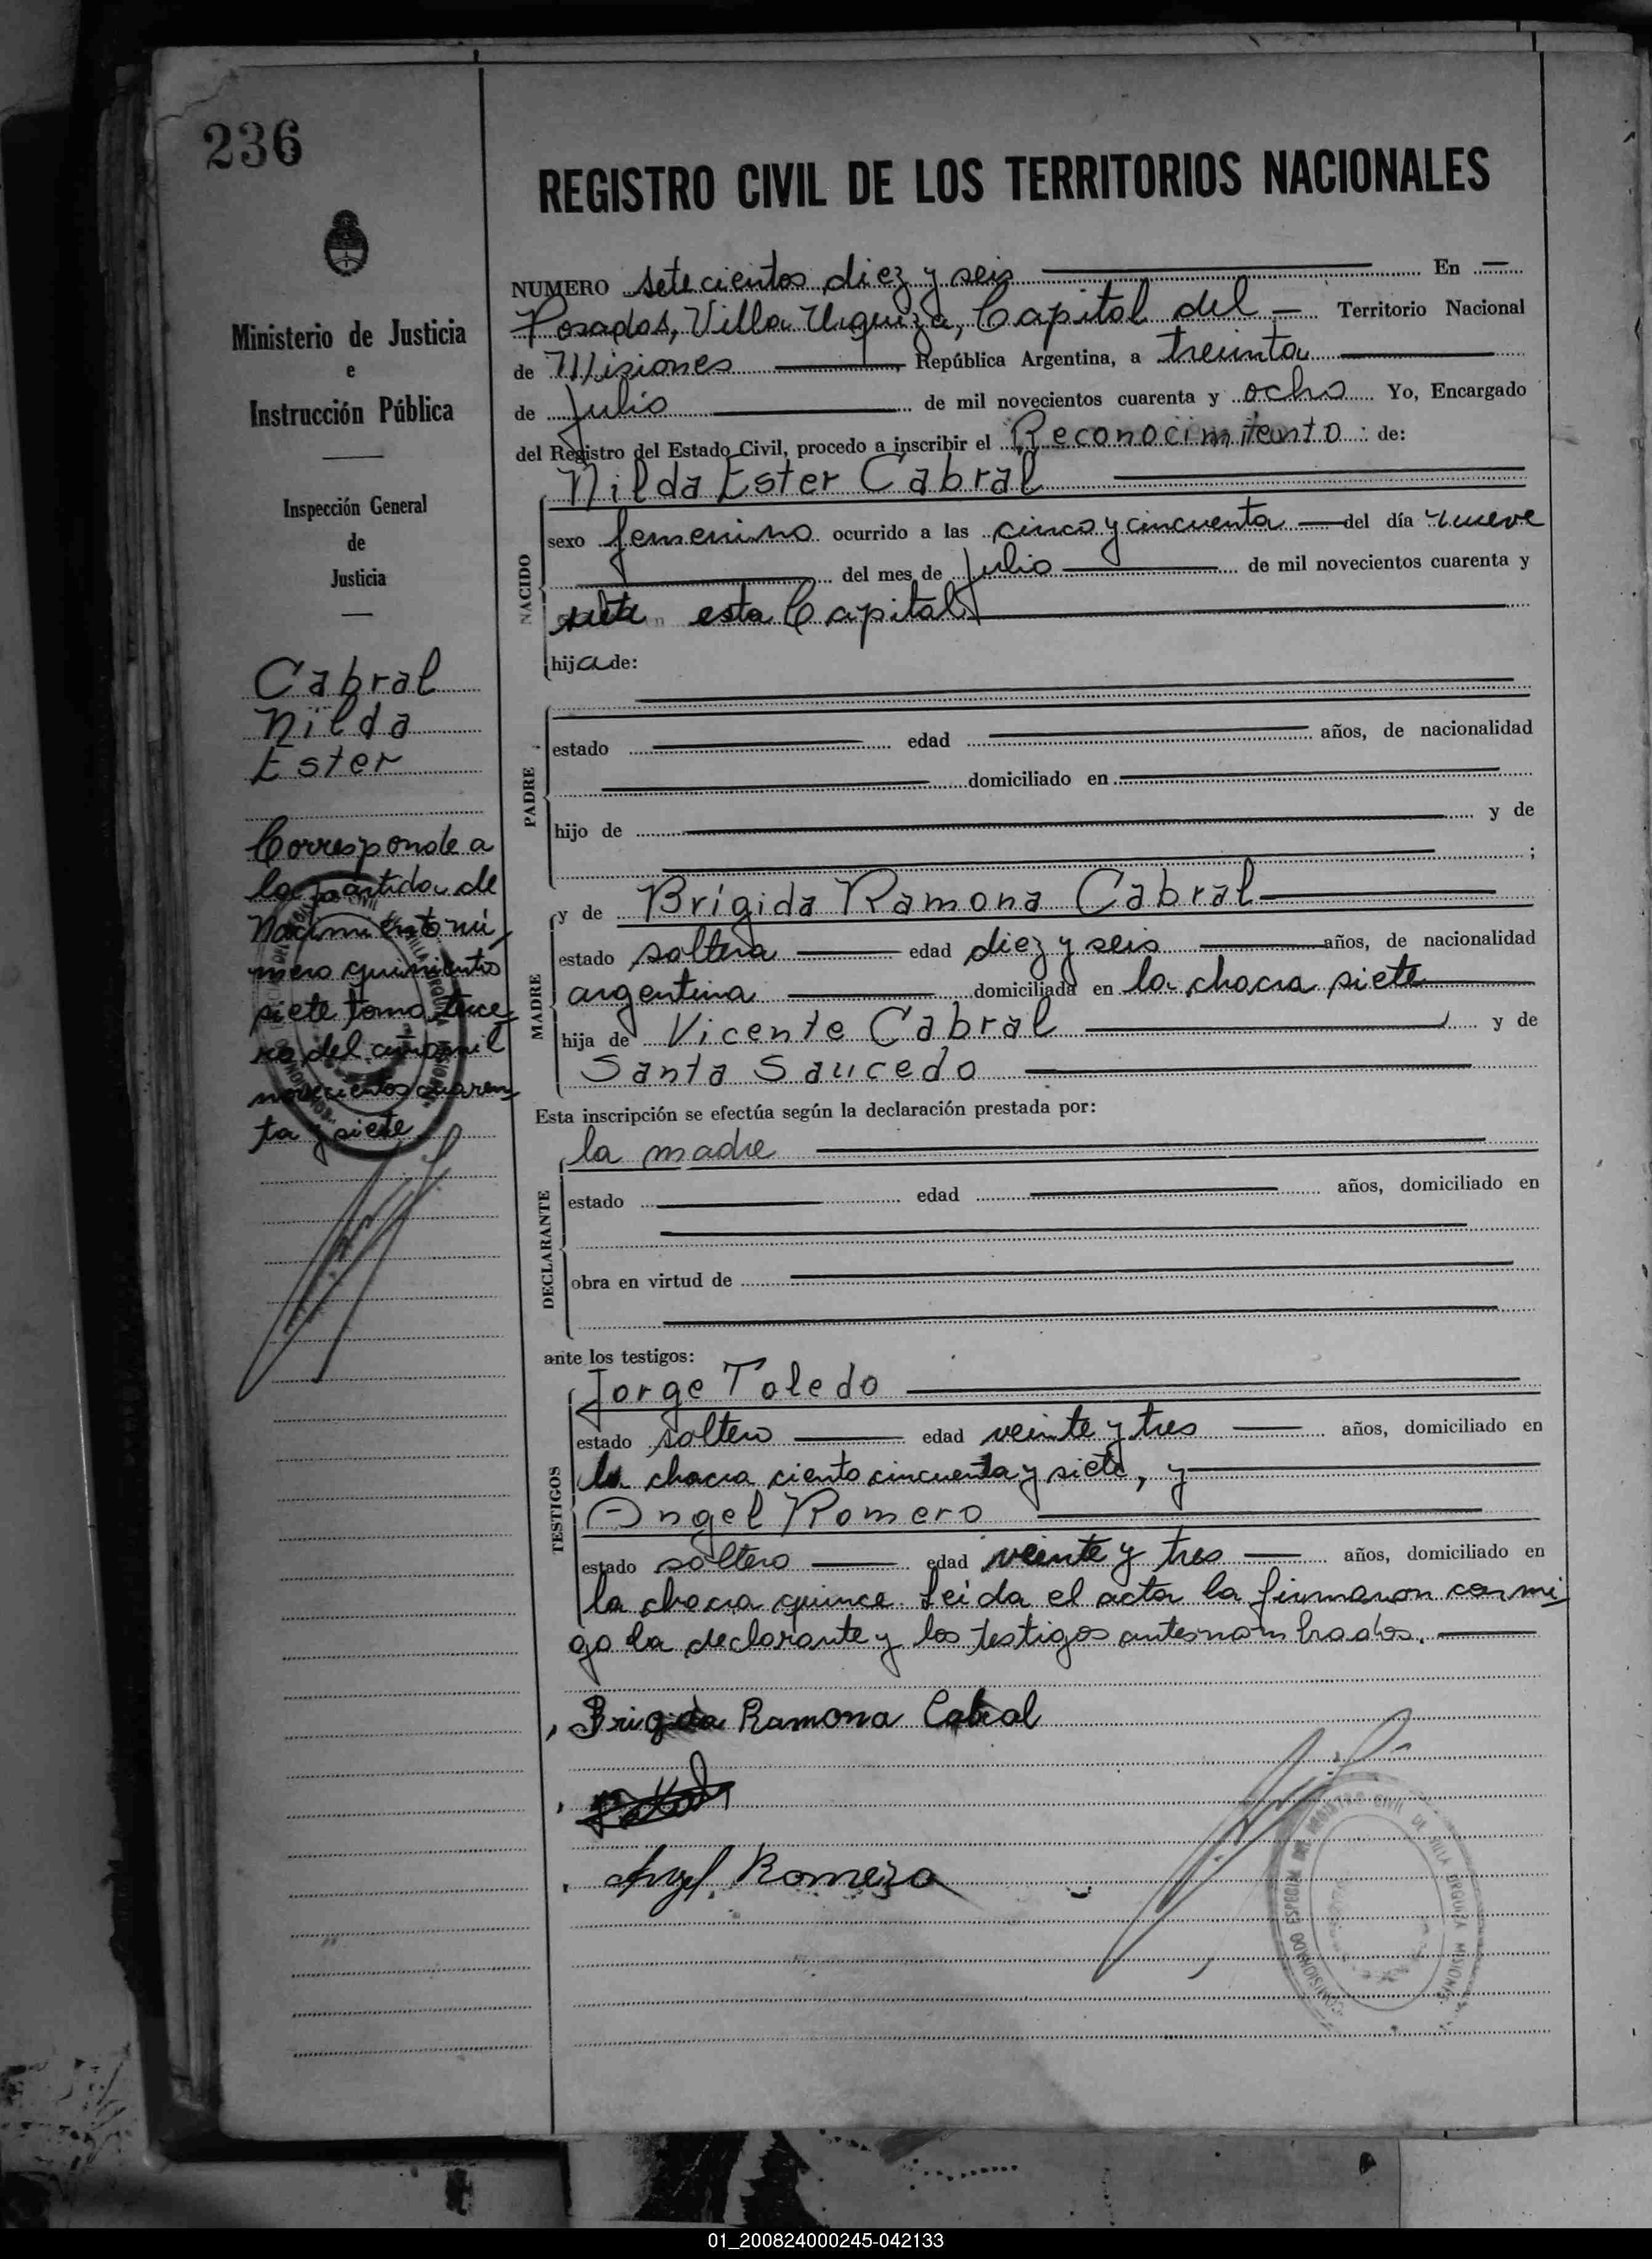 236
REGISTRO CIVIL DE LOS TERRITORIOS NACIONALES
Ministerio de Justicia
e
Instrucción Pública
Inspección General
de
Justicia
Cabral
Nilda
Ester
Corresponde a
la partida de
Nacimiento nú-
mero quinientos
siete tomo terce-
ro del año mil
novecientos cuaren-
ta y siete
NUMERO setecientos diez y seis En
Posadas, Villa Urquiza, Capital del Territorio Nacional
de Misiones, República Argentina, a treinta
de Julio de mil novecientos cuarenta y ocho Yo, Encargado
del Registro del Estado Civil, procedo a inscribir el Reconocimiento de:
Nilda Ester Cabral
NACIDO
sexo femenino ocurrido a las cinco y cincuenta del día nueve
del mes de Julio de mil novecientos cuarenta y
siete en esta Capital
hija de:
PADRE
estado edad años, de nacionalidad
domiciliado en
hijo de y de
;
MADRE
y de Brígida Ramona Cabral
estado soltera edad diez y seis años, de nacionalidad
argentina domiciliada en la chacra siete
hija de Vicente Cabral y de
Santa Saucedo
Esta inscripción se efectúa según la declaración prestada por:
la madre
DECLARANTE
estado edad años, domiciliado en
obra en virtud de
ante los testigos:
TESTIGOS
Jorge Toledo
estado soltero edad veinte y tres años, domiciliado en
la chacra ciento cincuenta y siete, y
Angel Romero
estado soltero edad veinte y tres años, domiciliado en
la chacra quince. Leida el acta la firmaron conmi-
go la declarante y los testigos antesnombrados.
Brigida Ramona Cabral
Angel Romero
COMISIONADO ESPECIAL DE REGISTRO CIVIL DE VILLA URQUIZA MISIONES
01_200824000245-042133